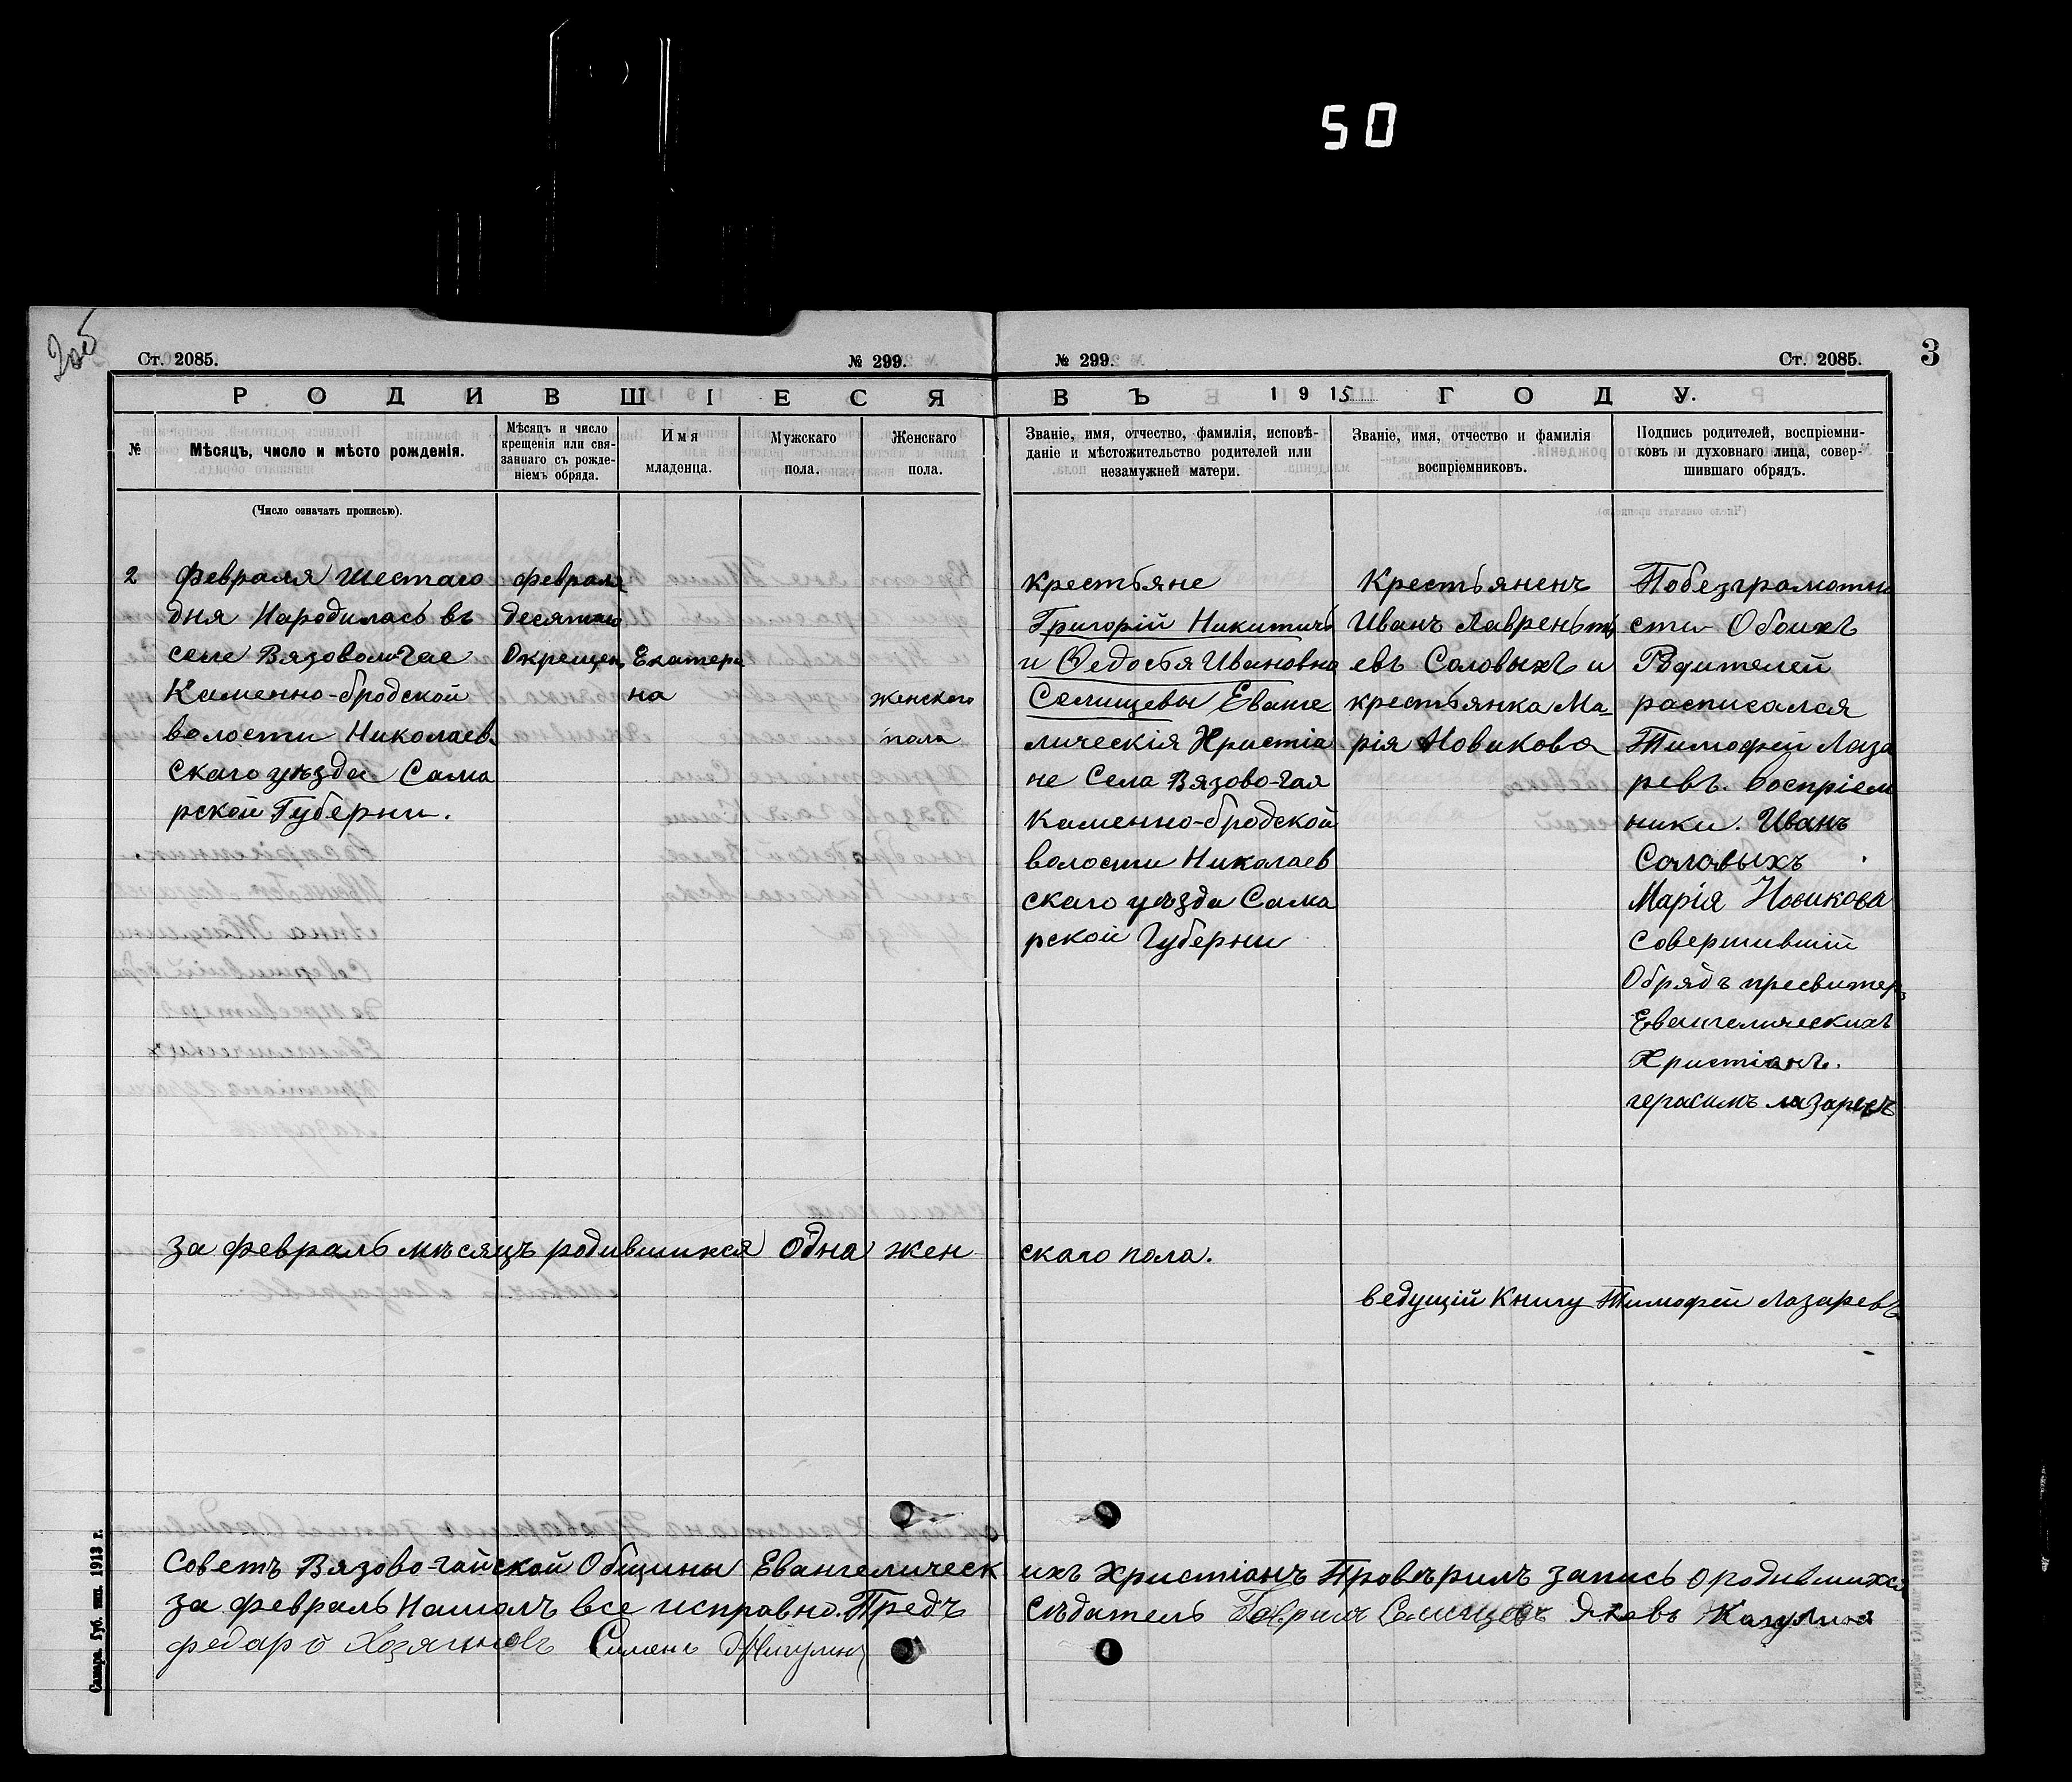 50
Ст. 2085.
№ 299.
№ 299.
Ст. 2085.
3
РОДИВШІЕСЯ
ВЪ 1915 ГОДУ.
№
Мѣсяцъ, число и мѣсто рожденія.
Мѣсяцъ и число
крещенія или свя-
заннаго съ рожде-
ніемъ обряда.
Имя
младенца.
Мужскаго
пола.
Женскаго
пола.
Званіе, имя, отчество, фамилія, исповѣ-
даніе и мѣстожительство родителей или
незамужней матери.
Званіе, имя, отчество и фамилія
воспріемниковъ.
Подпись родителей, воспріемни-
ковъ и духовнаго лица, совер-
шившаго обрядъ.
(Число означать прописью).
2
Февраля шестаго
дня Народилась въ
селе Вязовом-Гае
Каменно-бродской
волости Николаев
скаго уѣзда Сама
рской Губерни.
февраля
десятаго
Окрещен
Екатери
на
женскаго
пола
крестьяне
Григорій Никитичъ
и Ѳедосья Ивановна
Селищевы Еванге
лическія Христіа
не Села Вязово-гая
Каменно-бродской
волости Николаев
скаго уѣзда Сама
рской Губерни
Крестьяненъ
Иванъ Лаврентьи
евъ Соловыхъ и
крестьянка Ма-
рія Новикова
Побезграмотно
сти Обоихъ
Родителей
расписался
Тимофей Лаза
ревъ. Воспріем
ники. Иванъ
Соловыхъ
Марія Новикова
Совершившій
Обрядъ пресвитеръ
Евангелическихъ
Христіанъ.
герасимъ лазаревъ
За февраль мѣсяцъ родившихся Одна жен скаго пола.
ведущій Книгу Тимофей Лазаревъ
Советъ Вязово-гайской Общины Евангелическ ихъ христіанъ Провѣрилъ запись о родившихся
за февраль Нашолъ все исправно. Предъ сѣдатель Селищевъ Яковъ
федаръ Хозяиновъ Семенъ Жигулин